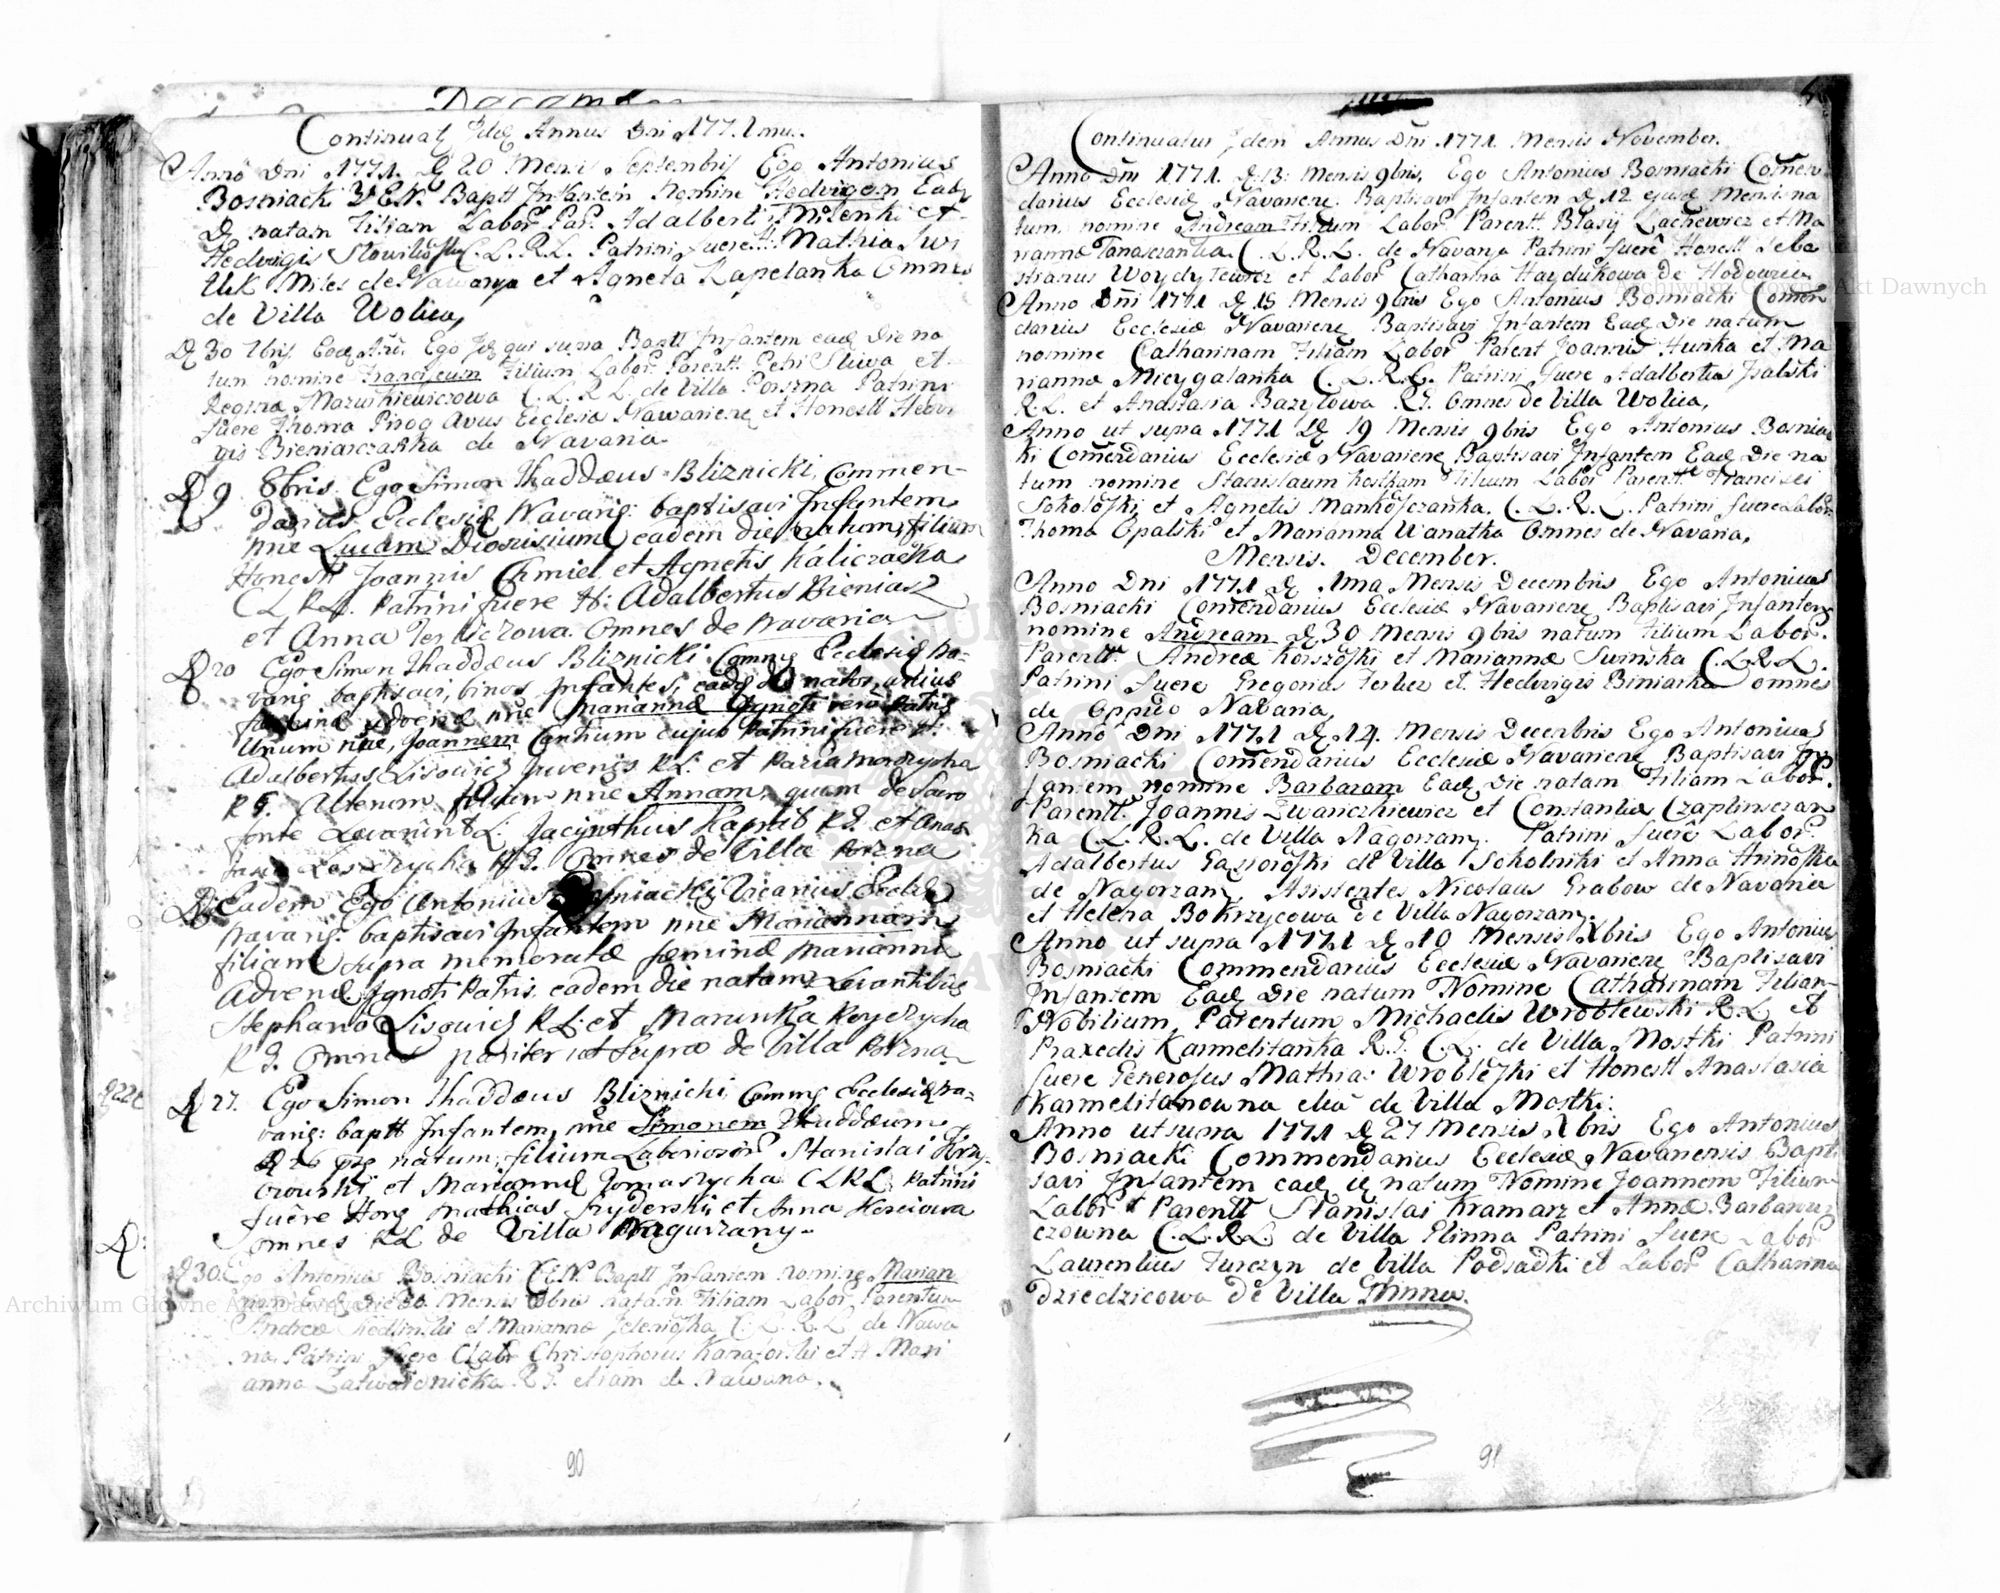 Continuat Idem Annus Dni 1771mus.
Anno Dni 1771. D 20 Mensis Septembris Ego Antonius
Bosniacki V.E.N. Baptt Infantem Nomine Hedvigem Eadē
D natam Filiam Labor Par. Adalberti Milenki et
Hedvigis C.L.R.L. Patrini fuere H. Mathia
Miles de Nawarya et Agneta Kapelanka Omnes
de Villa Wolica,
D 30 7bris Eod Ann. Ego Id qui supra Baptt Infantem ead Die na
tum Nomine Franciscum Filium Labor Parentt. Petri Sliwa et
Regina Maruszkiewiczowa C.L.R.L. de Villa Porszna Patrini
fuere Thoma Pirog Avus Ecclesia Nawariene et Honestt Hedvi
gis Bieniarczanka de Navaria
D 9 8bris. Ego Simon Thaddæus Bliznicki, Commen-
darius Ecclesiæ Navarie: baptisavi Infantem
nne Lucam Dionisium eadem die natum, filium
Honestt Joannis Chmiel, et Agnetis Kaliczacka
C L R L. Patrini fuere H: Adalbertus Bieniasz
et Anna Omnes de Navaria
D 20 Ego Simon Thaddæus Bliznicki Commng Ecclesiæ Na-
varig baptisavi, binos Infantes, eade die natos, unius
fæminæ advenæ nne Mariannæ Ignoti vero Patris
Unum nne, Joannem Cantium cujus Patrini fuere H:
Adalbertus Lisowicz juvenis RL. et Paria
R G. Alteram filiam nne Annam, quam de Sacro
fonte Levarunt L: Jacynthus RG. et Anas-
tasia RG. Omnes de Villa Porzna
D Eadem Ego Antonius Bosniacki Vicarius Eccle
Navarig: baptisavi Infantem nne Mariannam
filiam supra memoratæ fæminæ Marianna
Advenæ Ignoti Patris, eadem die natam, Levantibus
Stephano Lisowicz RL: et Marinka
R G. Omnes pariter ut supra de Villa Porzna
D 27. Ego Simon Thaddæus Bliznicki, Commng Ecclesiæ Na-
varig: baptt Infantem, nne Simonem Thaddæum
D 26 natum, filium Laboriosor Stanislai
et Mariannæ Tomaszycha CLRL Patrini
fuere Hong Mathias et Anna
omnes RL de Villa Nagurzany-
D 30. Ego Antonius Bosniacki C.E.N. Baptt Infantem Nomine Marian
nam Ead Die 30 Mensis 8bris natam Filiam Labor Parentum
Andreæ et Mariannæ C.L.R.L. de Nava
ria, Patrini fuere Labor Christophorus et H Mari
anna R.G. etiam de Nawaria.
90
Continuatur Idem Annus Dni 1771. Mensis November.
Anno Dni 1771. D. 13: Mensis 9bris, Ego Antonius Bosniacki Comen
darius Ecclesiæ Navariene. Baptisavi Infantem D 12 ejusd Mensi na
tum, nomine Andream Filium Labor Parentt. Blasij Lachewicz et Ma
riannæ Tanasczanka. C.L.R.L. de Navarya Patrini fuere Honestt Seba
stianus Woydylewicz et Labor Catharina Haydukowa de Hodowica
Anno Dni 1771 D 15 Mensis 9bris Ego Antonius Bosniacki Comen
darius Ecclesiæ Navariene Baptisavi Infantem Ead Die natam
nomine Catharinam Filiam Labor Parent Joannis Hunka et Ma
riannæ Micygalanka C.L.R.L. Patrini fuere Adalbertus
R.L. et Anastasia Bazylowa R.G. Omnes de Villa Wolica,
Anno ut supra 1771 D 19 Mensis 9bris Ego Antonius Bosniac
ki Comendarius Ecclesiæ Navariene Baptisavi Infantem Ead Die na
tum nomine Stanislaum Kostkam Filium Labor Parentt Francisci
Sokolofki, et Agnetis Mankofczanka. C.L.R.L. Patrini fuere Labor
Thoma Opalski et Marianna Wanatka Omnes de Navaria,
Mensis. December.
Anno Dni 1771 D 1ma Mensis Decembris Ego Antonius
Bosniacki Comendarius Ecclesiæ Navariene Baptisavi Infantem
nomine Andream D 30 Mensis 9bris natum Filium Labor.
Parentt. Andreæ Korszofki et Mariannæ Swinska C.L.R.L.
Patrini fuere Gregorius Ferbez et Hedvigis Biniarka omnes
de Oppido Navaria,
Anno Dni 1771 D 14. Mensis Decenbris Ego Antonius
Bosniacki Comendarius Ecclesiæ Navariene Baptisavi In
fantem nomine Barbaram Ead Die natam Filiam Labor.
Parentt. Joannis Iwanczkiewicz et Constantiæ Czaplinszan
ka C.L.R.L. de Villa Nagorzany. Patrini fuere Labor.
Adalbertus Gąsiorofki de Villa Sokolniki et Anna Hrinofka
de Nagorzany, Asistentes Nicolaus Grabow de Navaria
et Helena Bokrzycowa de Villa Nagorzany.
Anno ut supra 1771 D 10 Mensis Xbris Ego Antonius
Bosniacki Commendarius Ecclesiæ Navariene Baptisavi
Infantem Ead Die natum Nomine Catharinam Filiam
Nobilium, Parentum Michaelis Wroblewski R.L. et
Praxedis Karmelitanka R.G. C.L. de Villa Mostki Patrini
fuere Generosus Mathias Wroblefki et Honestt Anastasia
Karmelitanowna etia de Villa Mostki:
Anno ut supra 1771 D 27 Mensis Xbris Ego Antonius
Bosniacki Commendarius Ecclesiæ Navariensis Bapti
savi Infantem ead D natum Nomine Joannem Filium
Labor Parentt Stanislai Kramarz et Annæ Barbarze
czowna C.L.R.L. de Villa Glinna Patrini fuere Labor
Laurentius Furczyn de Villa Podsadki et Labor Catharina
Dziedzicowa de Villa Glinna.
91
Archiwum Główne Akt Dawnych
Archiwum Główne Akt Dawnych